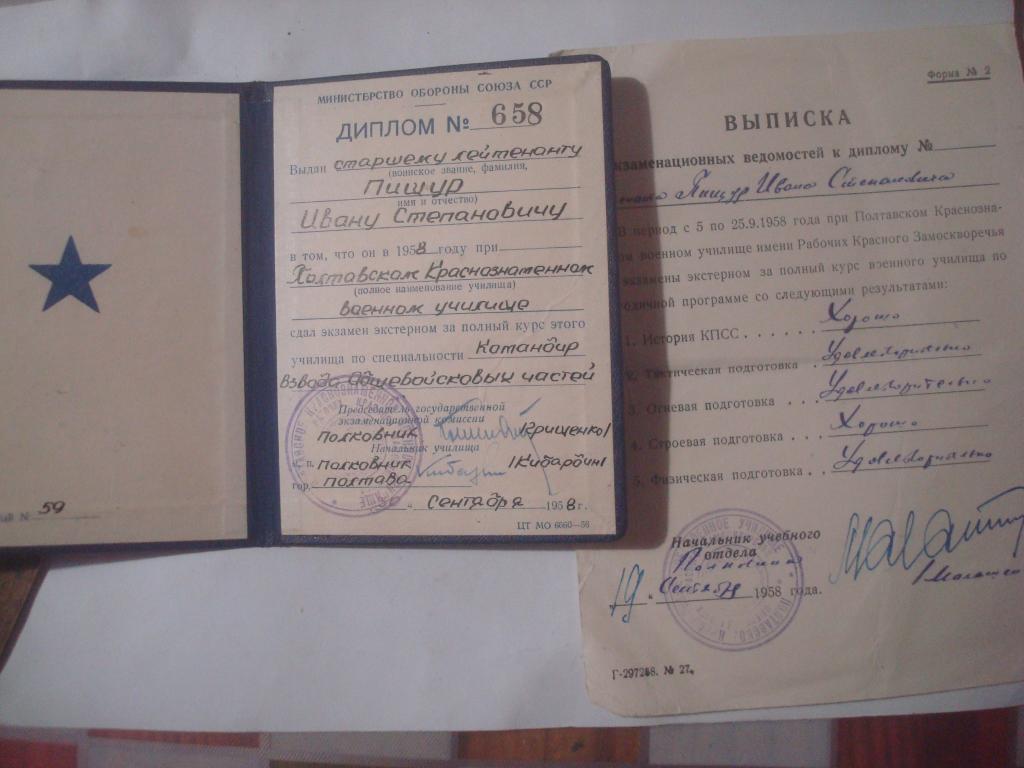 № 59
МИНИСТЕРСТВО ОБОРОНЫ СОЮЗА ССР
ДИПЛОМ № 658
Выдан старшему лейтенанту
(воинское звание, фамилия,
Пищур
имя и отчество)
Ивану Степановичу
в том, что он в 1958 году при
Полтавском Краснознаменном
(полное наименование училища)
военном училище
сдал экзамен экстерном за полный курс этого
училища по специальности Командир
взвода общевойсковых частей
Председатель государственной
экзаменационной комиссии
полковник /Крищенко/
Начальник училища
п. полковник /Кибардин/
гор. Полтава
" сентября 1958 г.
ЦТ МО 6060—56
Форма № 2
ВЫПИСКА
кзаменационных ведомостей к диплому №
Пищур Ивана Степановича
В период с 5 по 25.9.1958 года при Полтавском Краснозна-
ом военном училище имени Рабочих Красного Замоскворечья
экзамены экстерном за полный курс военного училища по
годичной программе со следующими результатами:
1. История КПСС . . . . . . Хорошо
2. Тактическая подготовка . Удовлетворительно
3. Огневая подготовка . . . Удовлетворительно
4. Строевая подготовка . . . Хорошо
5. Физическая подготовка . . Удовлетворительно
Начальник учебного
отдела
Полковник
19 " Сентября 1958 года.
Г-297268. № 27.